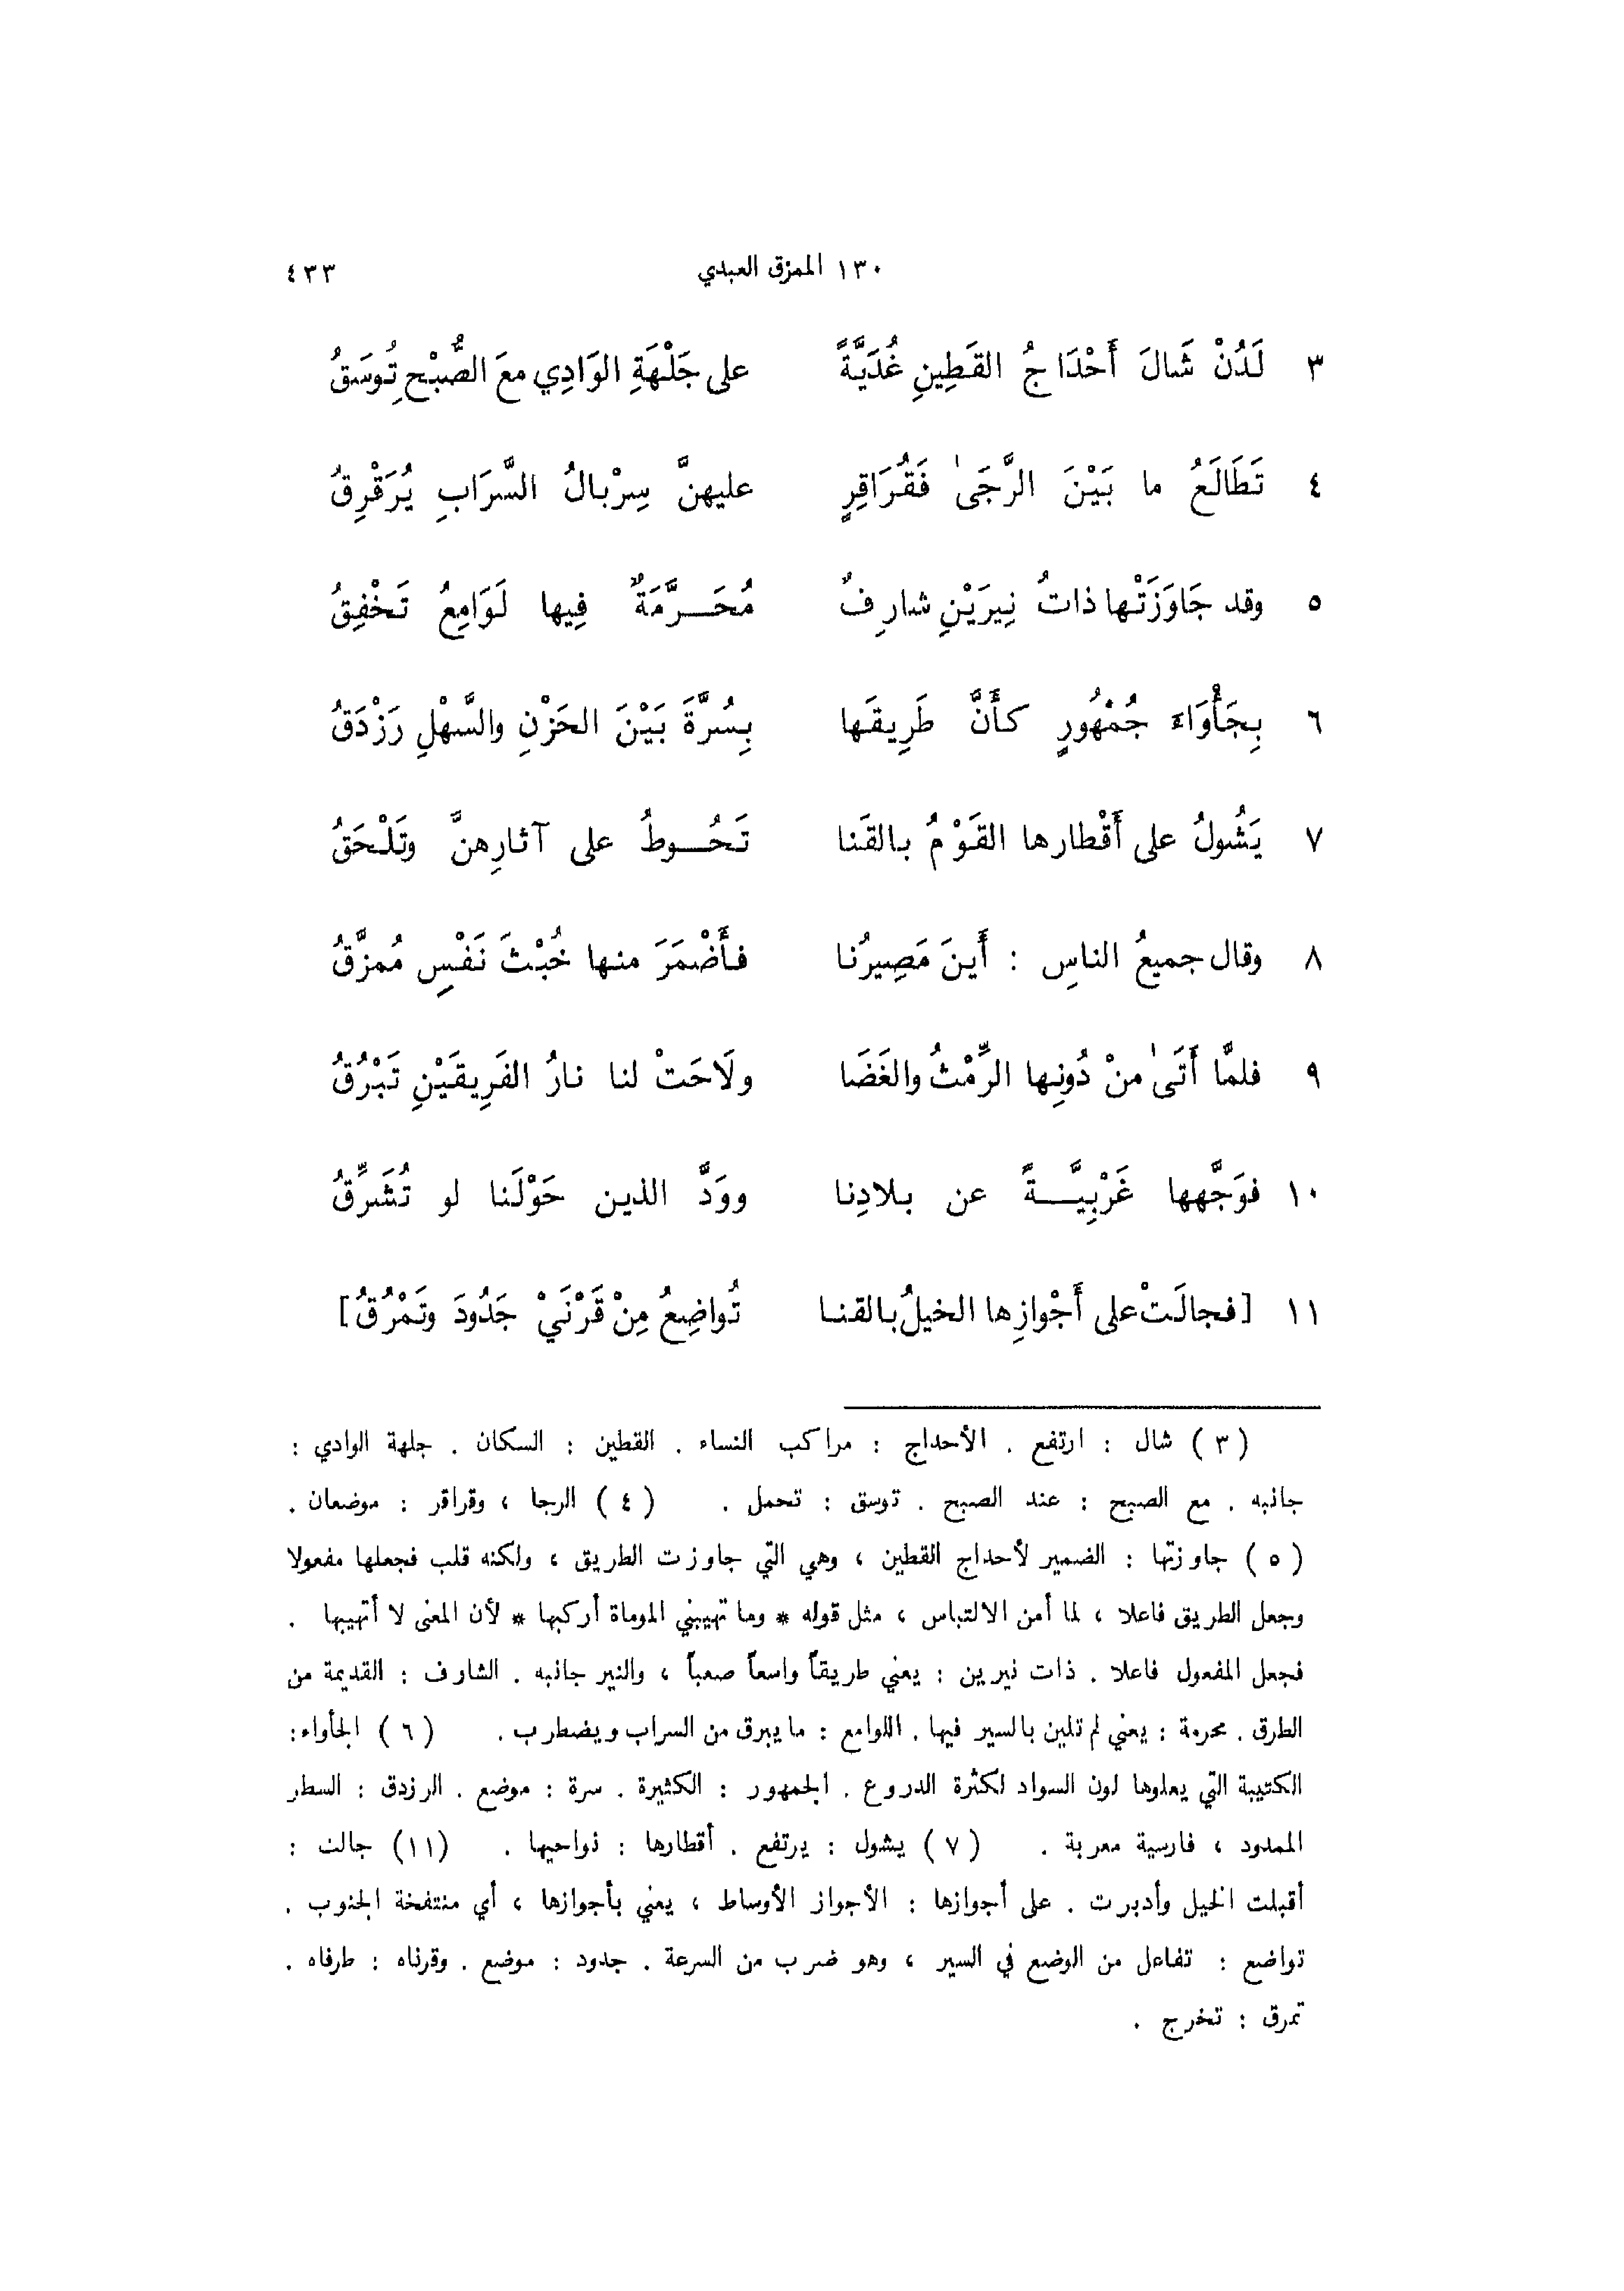 ١٣٠ الممزق العبدي ٤٣٣
٣ لَدُنْ شَالَ أَحْدَاجُ القَطِينِ غُدَيَّةً على جَلْهَةِ الوَادِي معَ الصُّبْحِ تُوسَقُ
٤ تَطَالَعُ ما بَيْنَ الرَّجَىٰ فَقُرَاقِرٍ عليهنَّ سِرْبالُ السَّرَابِ يُرَقْرِقُ
٥ وقد جَاوَزَتْها ذاتُ نِيرَيْنِ شارِفٌ مُحَرَّمَةٌ فِيها لَوَامِعُ تَخْفِقُ
٦ بِجَأْوَاءَ جُمْهُورٍ كأَنَّ طَرِيقَها بِسُرَّةَ بَيْنَ الحَزْنِ والسَّهْلِ رَزْدَقُ
٧ يَشُولُ على أَقْطارها القَوْمُ بالقَنا تَحُوطُ على آثارِهنَّ وتَلْحَقُ
٨ وقال جميعُ الناسِ : أَينَ مَصِيرُنا فأَضْمَرَ منها خُبْثَ نَفْسٍ مُمزَّقُ
٩ فلمَّا أَتَىٰ منْ دُونِها الرِّمْثُ والغَضَا ولَاحَتْ لنا نارُ الفَرِيقَيْنِ تَبْرُقُ
١٠ فوَجَّهها غَرْبِيَّةً عن بلادِنا ووَدَّ الذين حَوْلَنا لو تُشَرِّقُ
١١ [فجالَتْ على أَجْوازِها الخيلُ بالقنا تُواضِعُ مِنْ قَرْنَيْ جَدُودَ وتَمْرُقُ]
(٣) شال : ارتفع . الأحداج : مراكب النساء . القطين : السكان . جلهة الوادي :
جانبه . مع الصبح : عند الصبح . توسق : تحمل . (٤) الرجا ، وقراقر : موضعان .
(٥) جاوزتها : الضمير لأحداج القطين ، وهي التي جاوزت الطريق ، ولكنه قلب فجعلها مفعولا
وجعل الطريق فاعلا ، لما أمن الالتباس ، مثل قوله * وما تهيبني الموماة أركبها * لأن المعنى لا أتهيبها .
فجعل المفعول فاعلا . ذات نيرين : يعني طريقاً واسعاً صعباً ، والنير جانبه . الشارف : القديمة من
الطرق . محرمة : يعني لم تلين بالسير فيها . اللوامع : ما يبرق من السراب ويضطرب . (٦) الجأواء:
الكتيبة التي يعلوها لون السواد لكثرة الدروع . الجمهور : الكثيرة . سرة : موضع . الرزدق : السطر
الممدود ، فارسية معربة . (٧) يشول : يرتفع . أقطارها : نواحيها . (١١) جالت :
أقبلت الخيل وأدبرت . على أجوازها : الأجواز الأوساط ، يعني بأجوازها ، أي منتفخة الجنوب .
تواضع : تفاعل من الوضع في السير ، وهو ضرب من السرعة . جدود : موضع . وقرناه : طرفاه .
تمرق : تخرج .